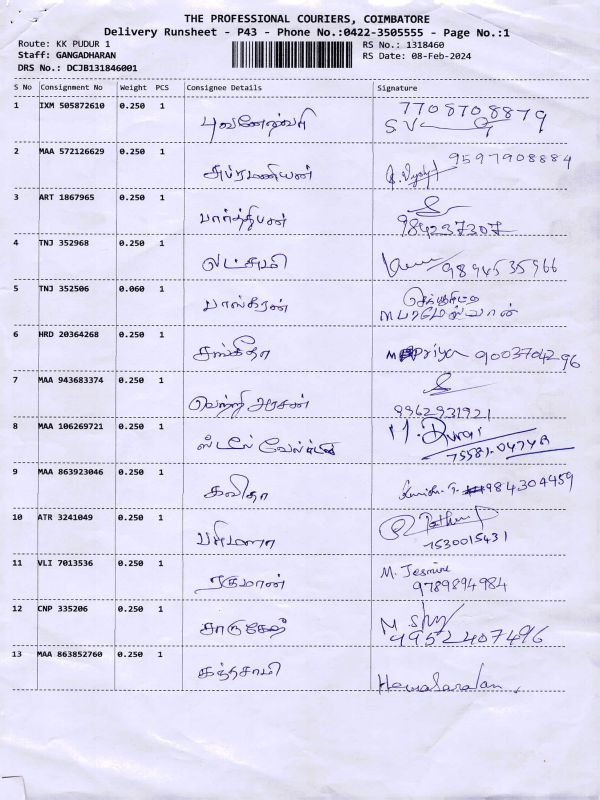 THE PROFESSIONAL COURIERS, COIMBATORE
Delivery Runsheet - P43 - Phone No.:0422-3505555 - Page No.:1
Route: KK PUDUR 1
RS No.: 1318460
Staff: GANGADHARAN
RS Date: 08-Feb-2024
DRS No.: DCJB131846001
S No Consignment No Weight PCS Consignee Details Signature
1 IXM 505872610 0.250 1 புவனேஸ்வரி 7708708879
SV
2 MAA 572126629 0.250 1 சுப்ரமணியன் 9597908884
3 ART 1867965 0.250 1 பார்த்திபன்
984237307
4 TNJ 352968 0.250 1 லட்சுமி 9894535966
5 TNJ 352506 0.060 1 பாஸ்கரன்
6 HRD 20364268 0.250 1 சங்கீதா Priya 9003704296
7 MAA 943683374 0.250 1 வெற்றி அரசன்
8962931921
8 MAA 106269721 0.250 1 ஸ்டீல் M. Durai
9 MAA 863923046 0.250 1 கவிதா 984304459
10 ATR 3241049 0.250 1 பரிமளா
7530015431
11 VLI 7013536 0.250 1 ரகுமான் M. Jesmine
9789894984
12 CNP 335206 0.250 1
9952407496
13 MAA 863852760 0.250 1 கந்தசாமி